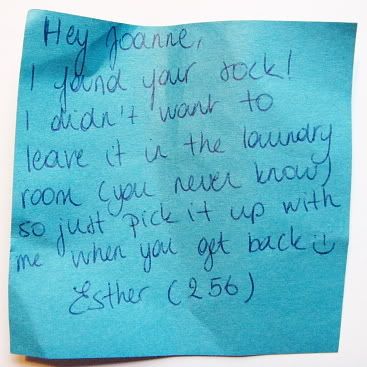 Hey Joanne,
I found your sock!
I didn't want to
leave it in the laundry
room (you never know)
so just pick it up with
me when you get back :)
Esther (256)